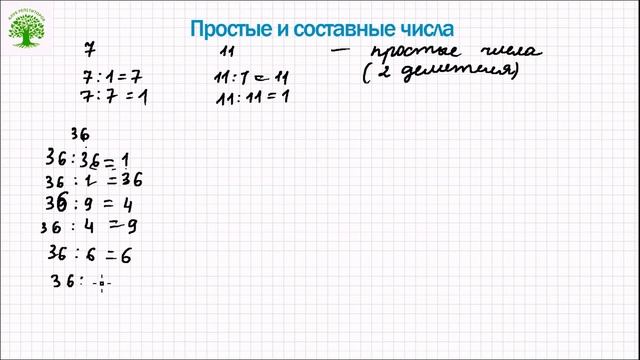 КЛУБ РЕПЕТИТОРОВ
Простые и составные числа
7 11 — простые числа
(2 делителя)
7 : 1 = 7 11 : 1 = 11
7 : 7 = 1 11 : 11 = 1
36
36 : 36 = 1
36 : 1 = 36
36 : 9 = 4
36 : 4 = 9
36 : 6 = 6
36 :